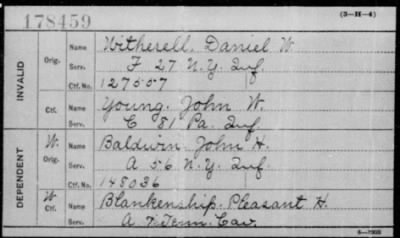 178459
(3-H-4)
INVALID
Orig. Name Witherell, Daniel W.
Serv. F 27 N.Y. Inf.
Ctf. No. 127557
Ctf. Name Young, John W.
Serv. C 81 Pa. Inf.
DEPENDENT
W. Orig. Name Baldwin, John H.
Serv. A 56 N.Y. Inf.
Ctf. No. 148036
W. Ctf. Name Blankenship, Pleasant H.
Serv. A 7 Tenn. Cav.